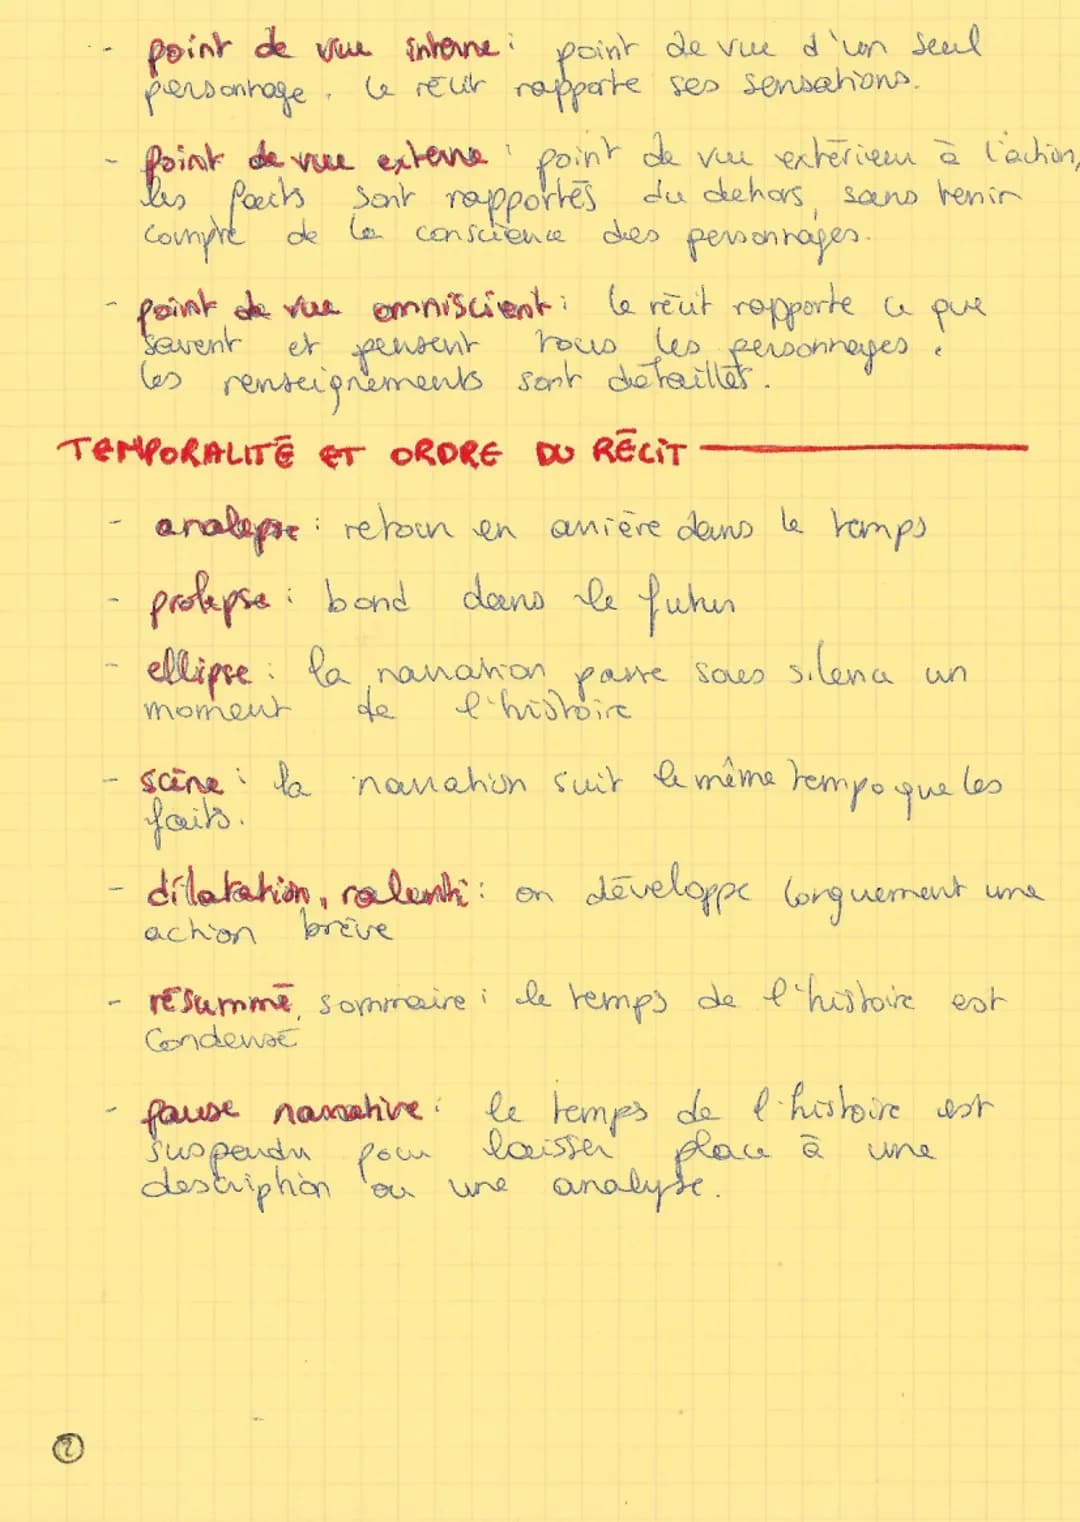 - point de vue interne : point de vue d'un seul
personnage. Le récit rapporte ses sensations.
- Point de vue externe : point de vue extérieur à l'action,
les faits sont rapportés du dehors, sans tenir
compte de la conscience des personnages.
- point de vue omniscient : le récit rapporte ce que
savent et pensent tous les personnages.
Les renseignements sont détaillés.
TEMPORALITÉ ET ORDRE DU RÉCIT
- analepse : retour en arrière dans le temps
- prolepse : bond dans le futur
- ellipse : la narration passe sous silence un
moment de l'histoire
- scène : la narration suit le même tempo que les
faits.
- dilatation, ralenti : on développe longuement une
action brève
- résummé, sommaire : le temps de l'histoire est
condensé
- pause narrative : le temps de l'histoire est
suspendu pour laisser place à une
description ou une analyse.
2